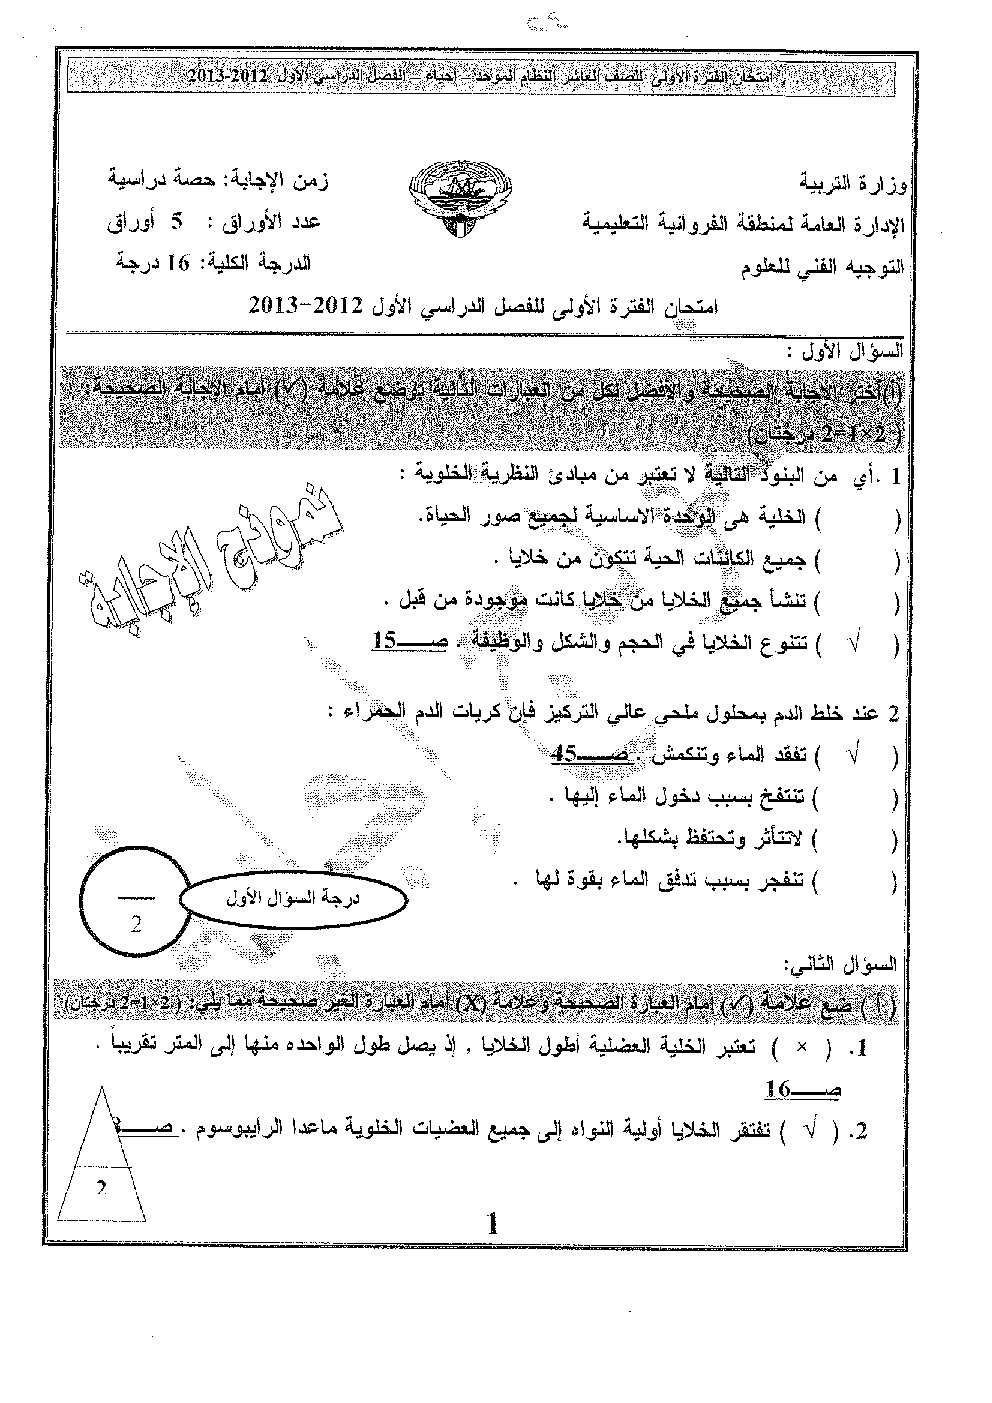 امتحان الفترة الأولى للصف العاشر النظام الموحد – أحياء – الفصل الدراسي الأول 2012-2013
وزارة التربية
زمن الإجابة: حصة دراسية
الإدارة العامة لمنطقة الفروانية التعليمية
عدد الأوراق : 5 أوراق
التوجيه الفني للعلوم
الدرجة الكلية: 16 درجة
امتحان الفترة الأولى للفصل الدراسي الأول 2012-2013
السؤال الأول :
(أ) اختر الاجابة الصحيحة والافضل لكل من العبارات التالية بوضع علامة (√) امام الاجابة الصحيحة :
( 2×1=2 درجتان)
1 .أي من البنود التالية لا تعتبر من مبادئ النظرية الخلوية :
( ) الخلية هى الوحدة الاساسية لجميع صور الحياة.
( ) جميع الكائنات الحية تتكون من خلايا .
( ) تنشأ جميع الخلايا من خلايا كانت موجودة من قبل .
( √ ) تتنوع الخلايا في الحجم والشكل والوظيفة . صـ15
نموذج الإجابة
2 عند خلط الدم بمحلول ملحى عالي التركيز فإن كريات الدم الحمراء :
( √ ) تفقد الماء وتنكمش . صـ45
( ) تنتفخ بسبب دخول الماء إليها .
( ) لاتتأثر وتحتفظ بشكلها.
( ) تنفجر بسبب تدفق الماء بقوة لها .
درجة السؤال الأول
2
السؤال الثاني:
( أ ) ضع علامة (√) أمام العبارة الصحيحة وعلامة (X) أمام العبارة الغير صحيحة مما يلي: ( 2×1=2 درجتان)
1. ( × ) تعتبر الخلية العضلية أطول الخلايا , إذ يصل طول الواحده منها إلى المتر تقريباً .
صـ16
2. ( √ ) تفتقر الخلايا أولية النواه إلى جميع العضيات الخلوية ماعدا الرايبوسوم . صـ
2
1